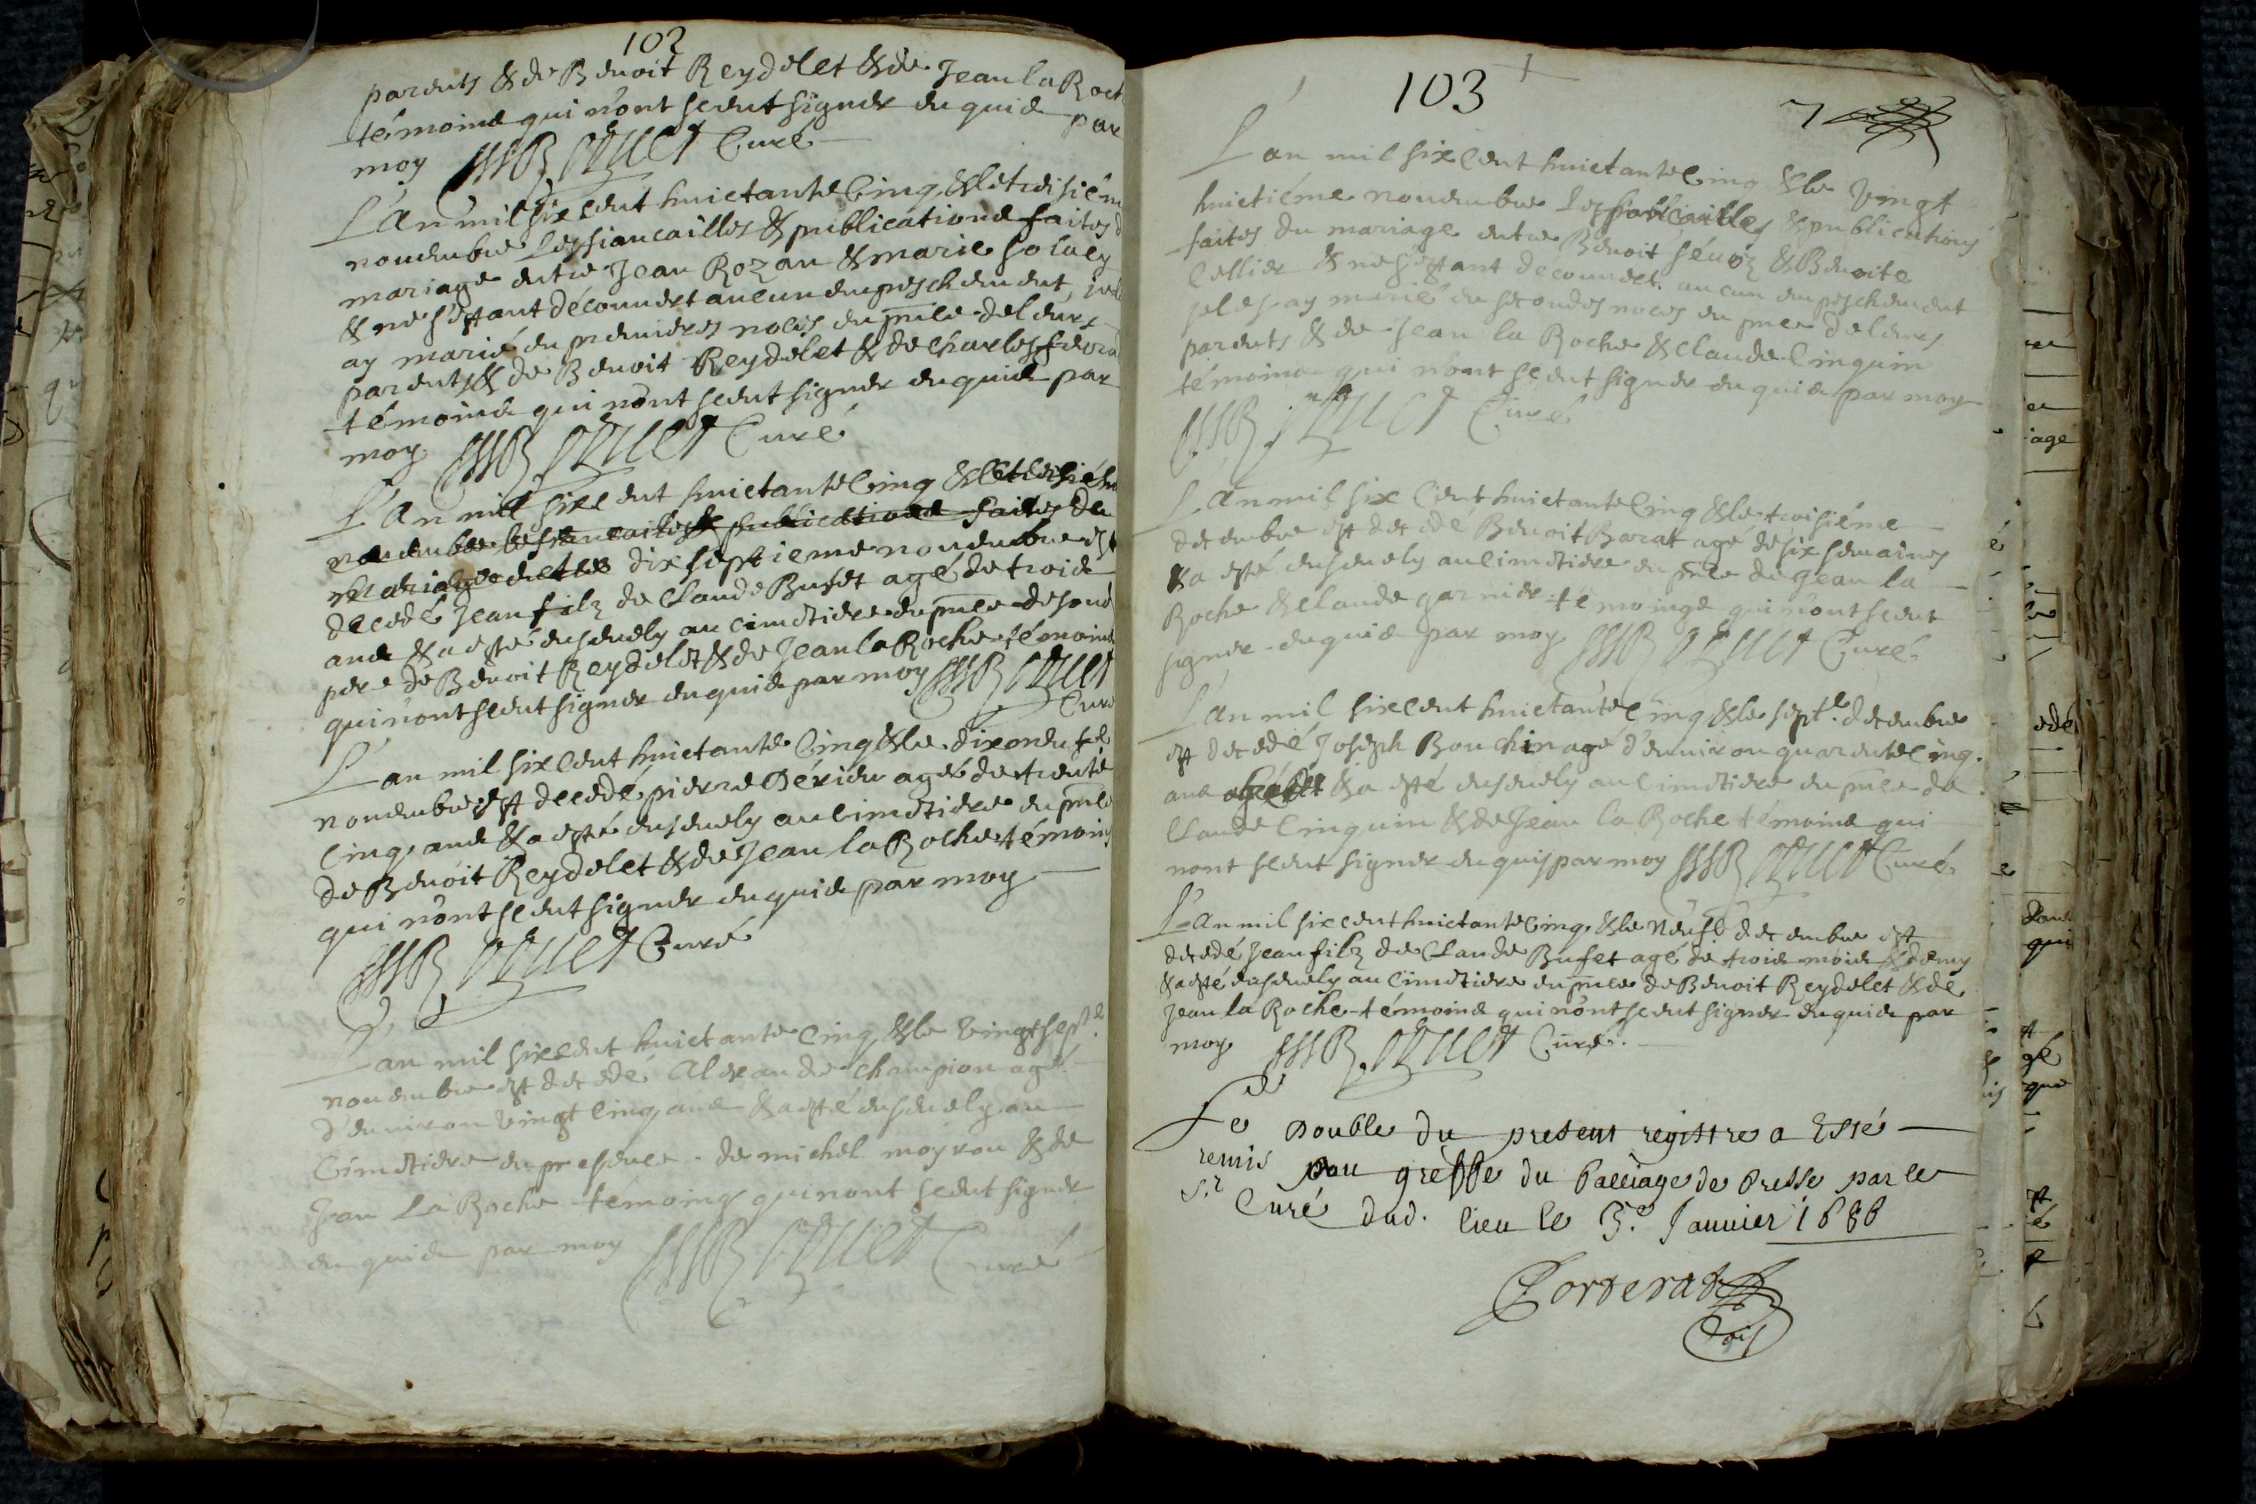 102
parents & de Benoit Reydelet & de Jean la Roch
témoins qui n'ont sceut signer enquis par
moy Curé
L'an mil six cent huictante cinq & le troisiém
novembre les fiancailles & publications faites d
mariage entre Jean Rozan & marie solaey
& ne s'estant découvert aucun empeschement, je l
ay marié en premieres noces en pnce de leurs
parents & de Benoit Reydelet & de Charles fevra
témoins qui n'ont sceut signer enquis par
moy Curé
L'an mil six cent huictante cinq & le troisiém
novembre les fiancailles & publications faites du
Mariage entre dix septieme novembre est
decedé Jean filz de Claude Bufet agé de trois
ans & a esté ensevely au cimetiere en pnce de son
pere de Benoit Reydelet & de Jean la Roche témoins
qui n'ont sceut signer enquis par moy
Curé
L'an mil six cent huictante cinq & le dix neufe
novembre est decedé pierre Dérieu agé de trente
cinq ans & a esté ensevely au cimetiere en pnce
de Benoit Reydelet & de Jean la Roche témoins
qui n'ont sceut signer enquis par moy
Curé
L'an mil six cent huictante cinq & le vingt septe
novembre est decedé Alexandre champion agé
d'environ vingt cinq ans & a esté ensevely au
cimetiere en presence de michel moyrou & de
Jean La Roche témoins qui n'ont sceut signer
enquis par moy Curé
103
7
L'an mil six cent huictante cinq & le vingt
huictiéme novembre les fiancailles & publications
faites du mariage entre Benoit sévoz & Benoite
Cellier & ne s'estant découvert aucun empeschement
je les ay marié en secondes noces en pnce de leurs
parents & de Jean la Roche & Claude Cinquin
témoins qui n'ont sceut signer enquis par moy
Curé
L'an mil six cent huictante cinq & le troisiéme
decembre est decede Benoit Barat agé de six semaines
& a esté ensevely au cimetiere en pnce de Jean la
Roche & Claude garnier témoings qui n'ont sceut
signer enquis par moy Curé
L'an mil six cent huictante cinq & le septe. decembre
est decedé Joseph Bouchin agé d'environ quarente cinq
ans & a esté ensevely au cimetiere en pnce de
Claude Cinquin & de Jean la Roche témoins qui
n'ont sceut signer enquis par moy Curé
L'an mil six cent huictante cinq & le Neufe decembre est
decedé Jean filz de Claude Bufet agé de trois mois & demy
& a esté ensevely au cimetiere en pnce de Benoit Reydelet & de
Jean la Roche témoins qui n'ont sceut signer enquis par
moy Curé
Le Double du present registre a Esté
remis au greffe du balliage de bresse par le
Sr Curé dud. lieu le 5e Janvier 1686